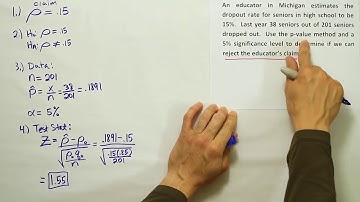 claim
1.) ρ = .15
2) H₀: ρ = .15
Hₐ: ρ ≠ .15
3.) Data:
n = 201
p̂ = x/n = 38/201 = .1891
α = 5%
4) Test Stat:
Z = p̂ - p₀ / √(p₀q₀/n) = .1891 - .15 / √(.15(.85)/201)
= 1.55
An educator in Michigan estimates the
dropout rate for seniors in high school to be
15%. Last year 38 seniors out of 201 seniors
dropped out. Use the p-value method and a
5% significance level to determine if we can
reject the educator's claim